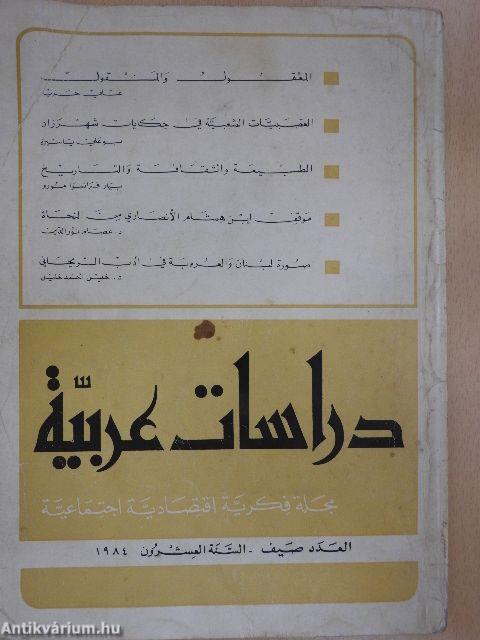 المعقول والمنقول
علي حرب
العصبيات الشعبية في حكايات شهرزاد
بو علي ياسين
الطبيعة والثقافة والتاريخ
بيار فرانسوا مورو
موقف ابن هشام الأنصاري من النحاة
د. عصام نور الدين
صورة لبنان والعروبة في أدب الريحاني
د. خليل أحمد خليل
دراسات عربيّة
مجلة فكرية اقتصادية اجتماعية
العدد صيف - السنة العشرون ١٩٨٤
Antikvárium.hu